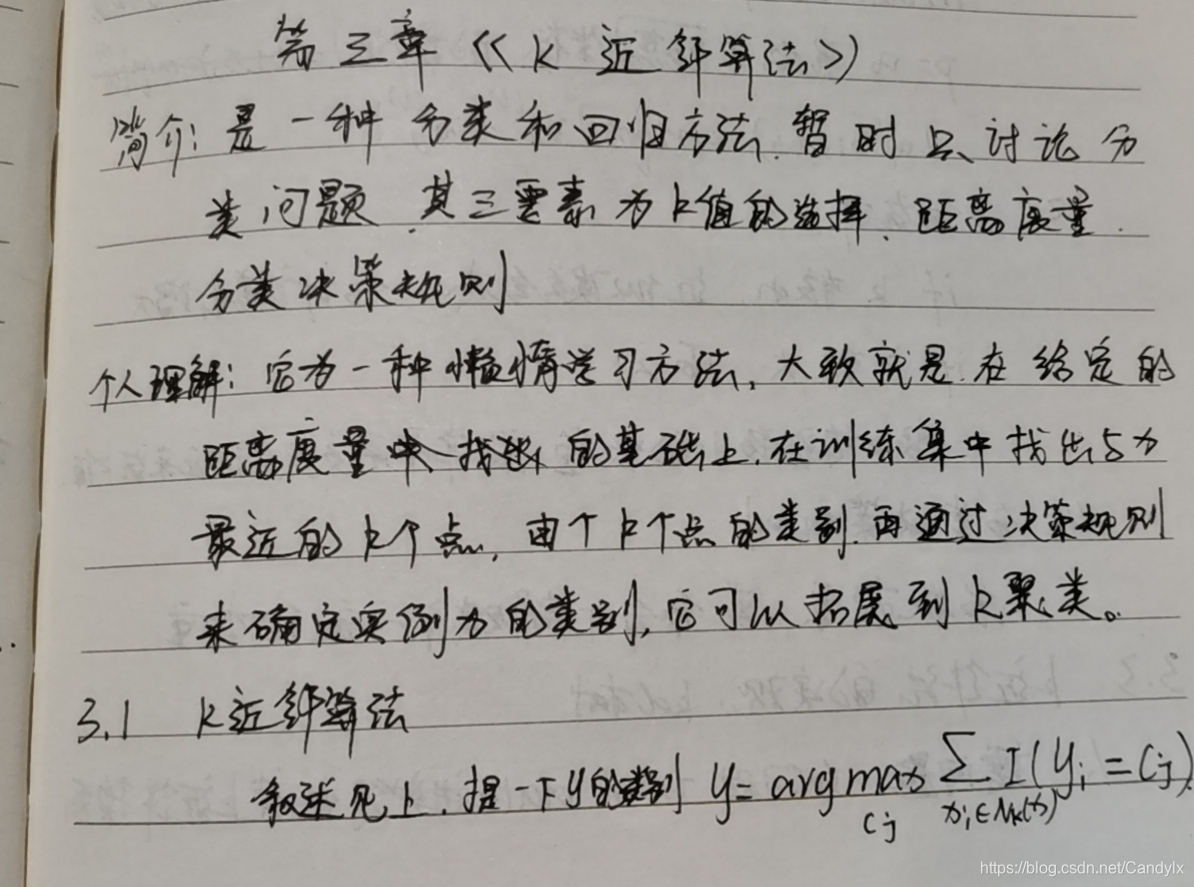 第三章《K近邻算法》
简介:是一种分类和回归方法.暂时只讨论分
类问题.其三要素为k值的选择、距离度量、
分类决策规则
个人理解:它为一种懒惰学习方法,大致就是在给定的
距离度量的基础上,在训练集中找出与x
最近的k个点,由个k个点的类别,再通过决策规则
来确定实例x的类别,它可以拓展到k聚类。
3.1 K近邻算法
叙述见上,提一下y的类别 y=arg max_{cj} ∑_{xi∈Nk(x)} I(yi=cj).
https://blog.csdn.net/Candylx